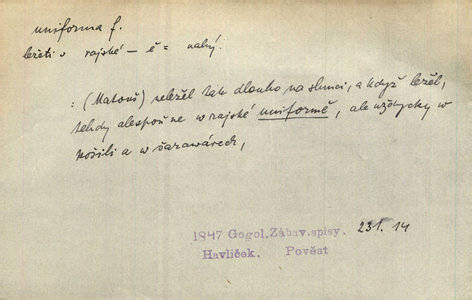 uniforma f.
ležeti v rajské — ě = nahý.
: (Matouš) neležel tak dlouho na slunci, a když ležel,
tehdy alespoň ne w rajské uniformě, ale wždycky w
košili a w šarawárech,
1847 Gogol, Zábav. spisy. 231. 14
Havlíček. Pověst